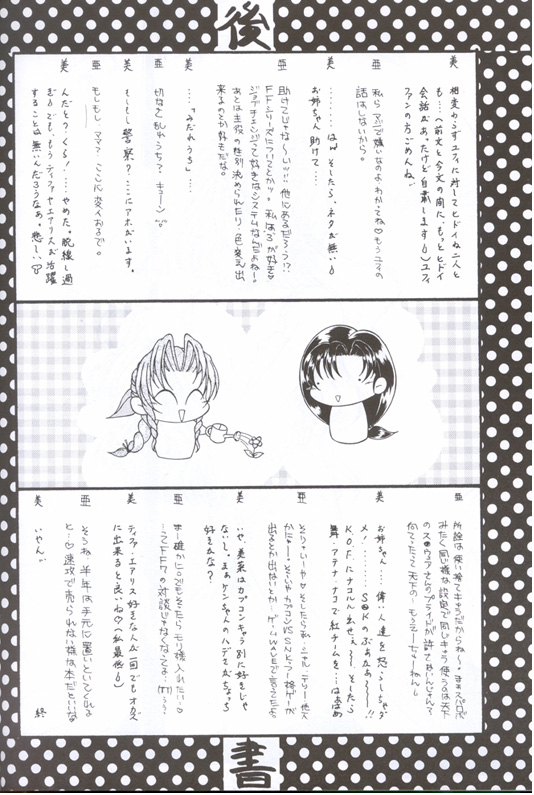 後
美　相変わらずユフィに対してヒドイね二人と
も…。(前文と今文の間に、もっとヒドイ
会話があったけど自粛します)ユフィ
ファンの方ごめんね
亜　私らマジで嫌いなのよわかってね♡もうユフィの
話はしないから。
美　………はっ、そしたら、ネタが無い
お姉ちゃん助けて……
亜　助けてじゃな〜いッ!!他にあるだろう!?
FFシリーズについてとかッ。私は5が好き♡
ジョブチェンジって好きなシステムなんだよねー。
あとは主役の性別決められたり、色変え出
来るのとか好きだな。
美　…「みだれうち」……
亜　切なく乱れうち？キューン♡。
美　もしもし、警察？……ここにアホがいます。
亜　もしもし、ママ？ここに変人おるで。
美　んだとのくら!……やめた。脱線し過
ぎ。でも、もうティファやエアリスが活躍
することは無いんだろうなあ。悲しい
亜　所詮は使い捨てキャラだからね〜。まあスパロボ
みたく同じ様な設定で同じキャラ使うのは天下
のス●ウェアさんのプライドが許さないんじゃん？
何てったって天下の…もうええっちゅーねん
美　お姉ちゃん……偉い人達を怒らしちゃダ
メ!……S●Kのぶぁかぁ〜〜!!
K.O.F.にナコルル出せぇ〜、そしたら
舞、アテナ、ナコで紅チームを…
亜
出るとか出ないとか、ゲームWAVEで言ってたよ
美　いや、美菜はカプコンキャラ別に好きじゃ
ないし。まぁケンちゃんのハデさがちょっち
好きかな？
亜
ってFF7の対談じゃなくなってるって
美　ティファ・エアリス好きな人が一回でもオカズ
に出来ると良いね♡(私最低)
亜　そうね、半年は手元に置いといてくれる
と…♡速攻で売られない様な本だといいな
美　いやん
終
書